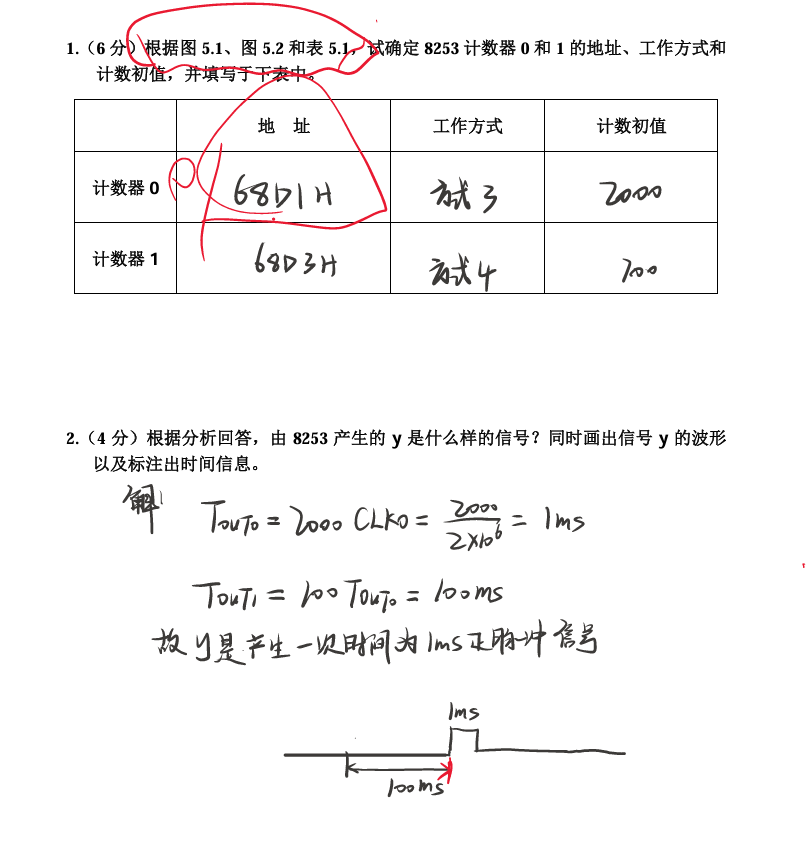 1.（6 分）根据图 5.1、图 5.2 和表 5.1，试确定 8253 计数器 0 和 1 的地址、工作方式和
计数初值，并填写于下表中。
地 址 工作方式 计数初值
计数器 0 68D1H 方式 3 2000
计数器 1 68D3H 方式 4 100
2.（4 分）根据分析回答，由 8253 产生的 y 是什么样的信号？同时画出信号 y 的波形
以及标注出时间信息。
解
TOUT0 = 2000 CLK0 = 2000 / 2×10^6 = 1ms
TOUT1 = 100 TOUT0 = 100ms
故 y 是产生一次时间为 1ms 正脉冲信号
1ms
100ms